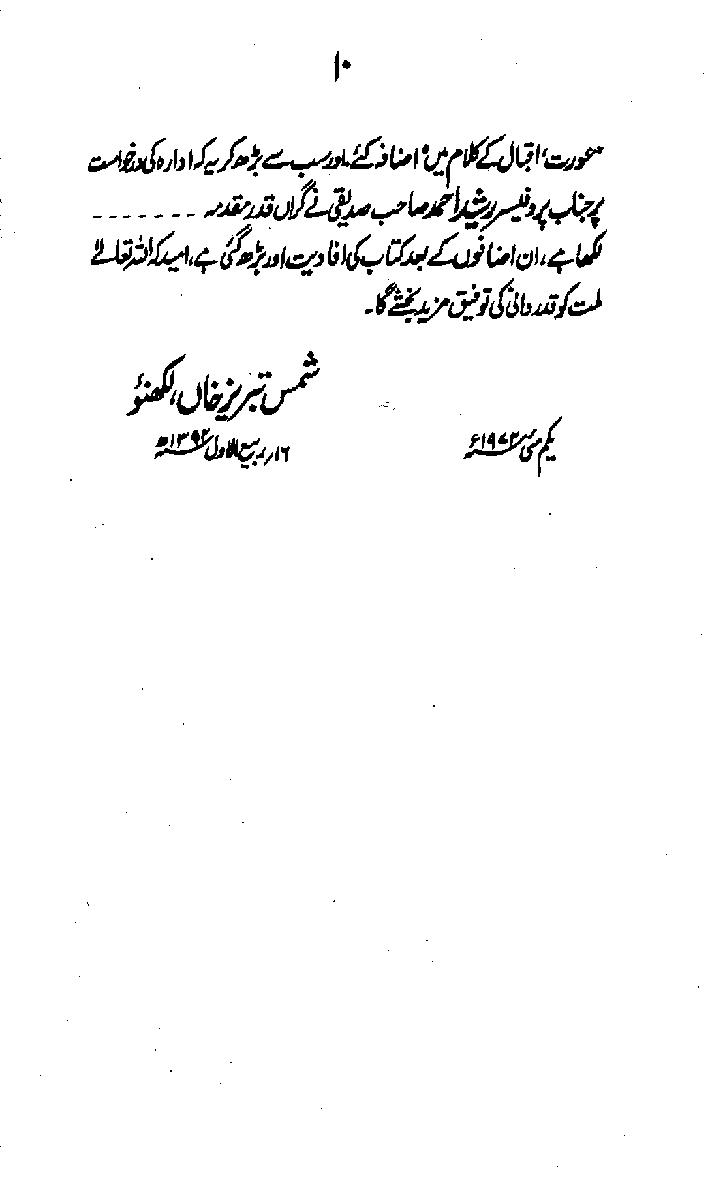 ۱۰
”عورت، اقبال کے کلام میں“ اضافہ کئے، اور سب سے بڑھ کر یہ کہ ادارہ کی درخواست
پر جناب پروفیسر رشید احمد صاحب صدیقی نے گراں قدر مقدمہ -------
لکھا ہے، ان اضافوں کے بعد کتاب کی افادیت اور بڑھ گئی ہے، امید کہ اللہ تعالےٰ
ملت کو قدر دانی کی توفیق مزید بخشے گا۔
شمس تبریز خاں، لکھنؤ
یکم مئی ۱۹۷۲ء ۱۶؍ ربیع الاول ۱۳۹۲ھ